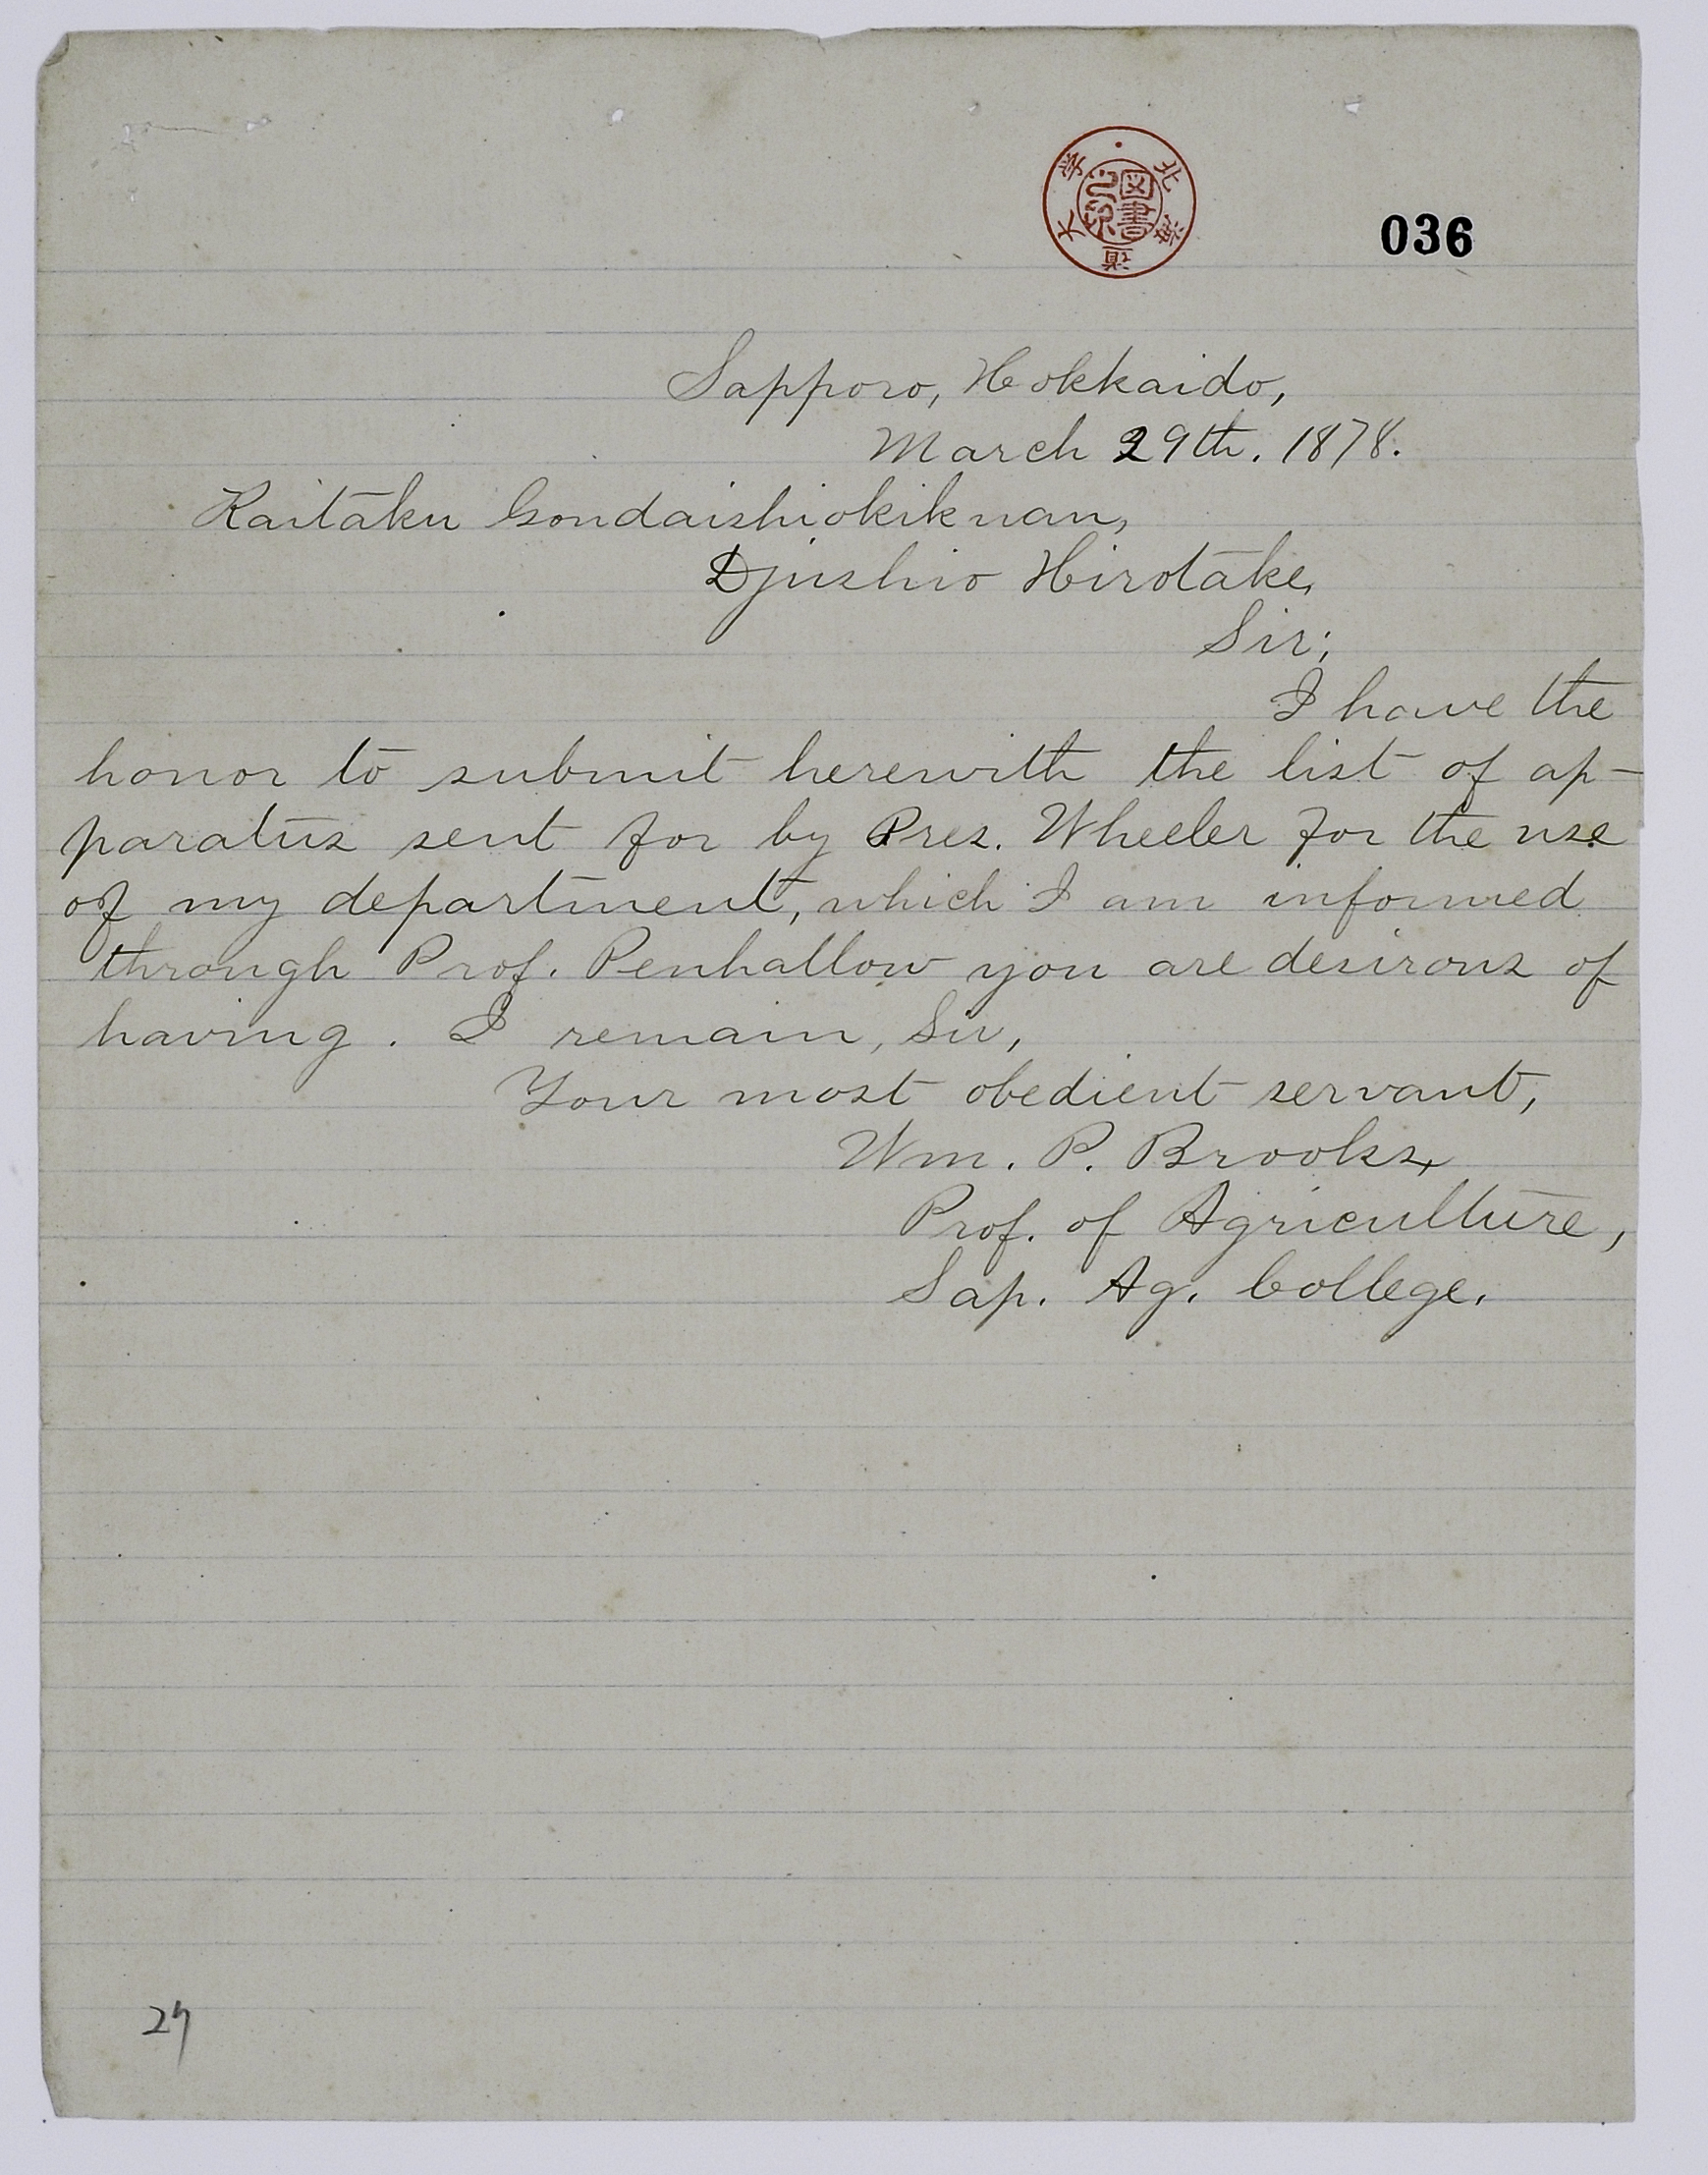 北海道大学
図書
036
Sapporo, Hokkaido,
March 29th. 1878.
Kaitaku Gondaishiokikuan,
Djushio Hirotake,
Sir;
I have the
honor to submit herewith the list of ap-
paratus sent for by Pres. Wheeler for the use
of my department, which I am informed
through Prof. Penhallow you are desirous of
having. I remain, Sir,
Your most obedient servant,
Wm. P. Brooks,
Prof. of Agriculture,
Sap. Ag. College.
27